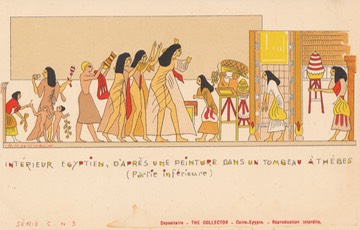 INTÉRIEUR EGYPTIEN, D'APRÈS UNE PEINTURE DANS UN TOMBEAU À THÈBES
(Partie inférieure)
SÉRIE C N 3
Depositaire - THE COLLECTOR - Caire-Egypte. - Reproduction interdite.